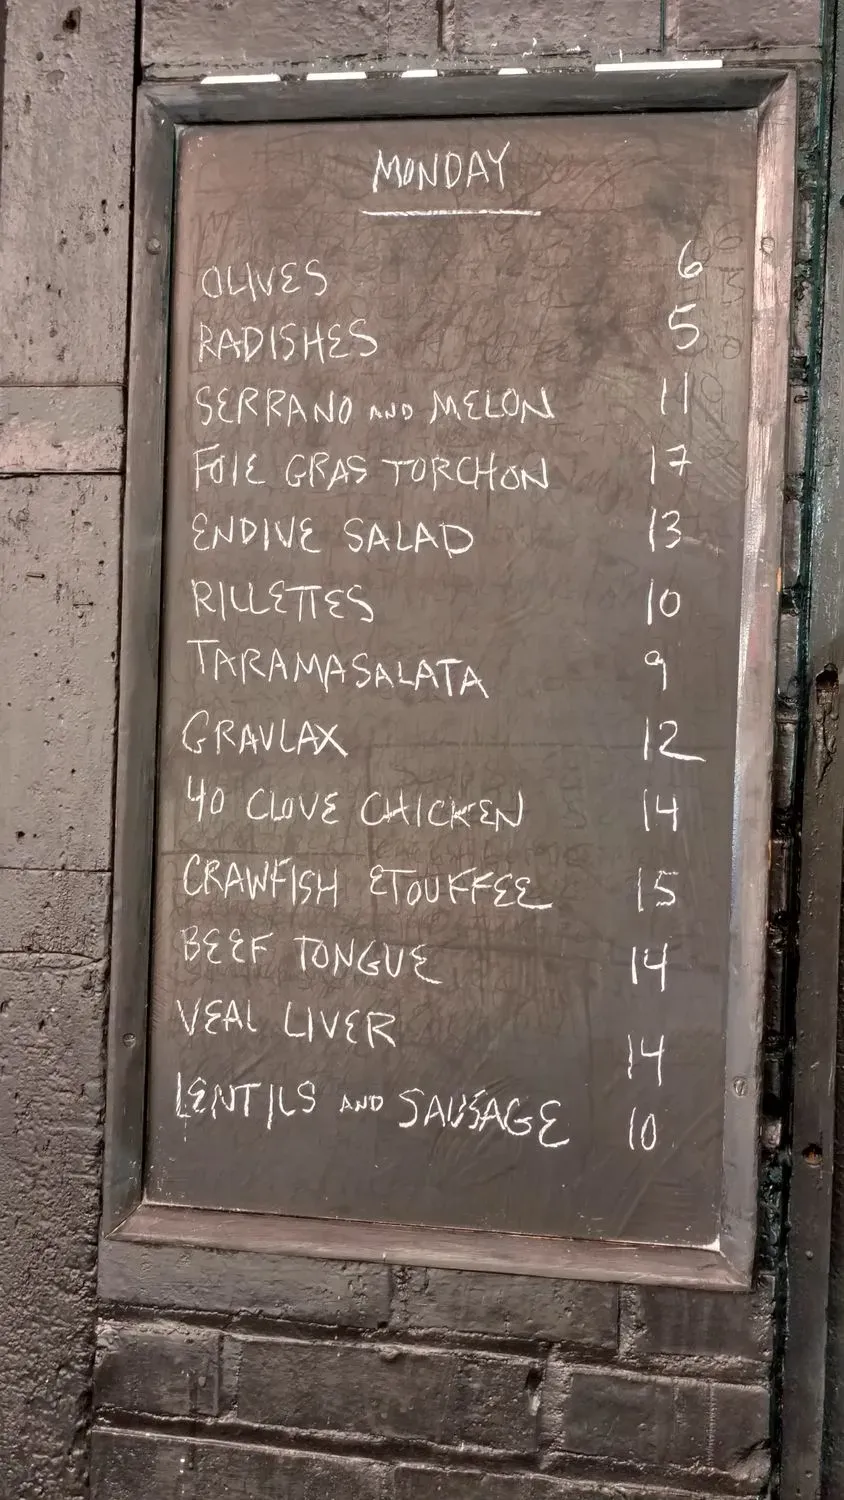 MONDAY
OLIVES 6
RADISHES 5
SERRANO AND MELON 11
FOIE GRAS TORCHON 17
ENDIVE SALAD 13
RILLETTES 10
TARAMASALATA 9
GRAVLAX 12
40 CLOVE CHICKEN 14
CRAWFISH ETOUFFEE 15
BEEF TONGUE 14
VEAL LIVER 14
LENTILS AND SAUSAGE 10